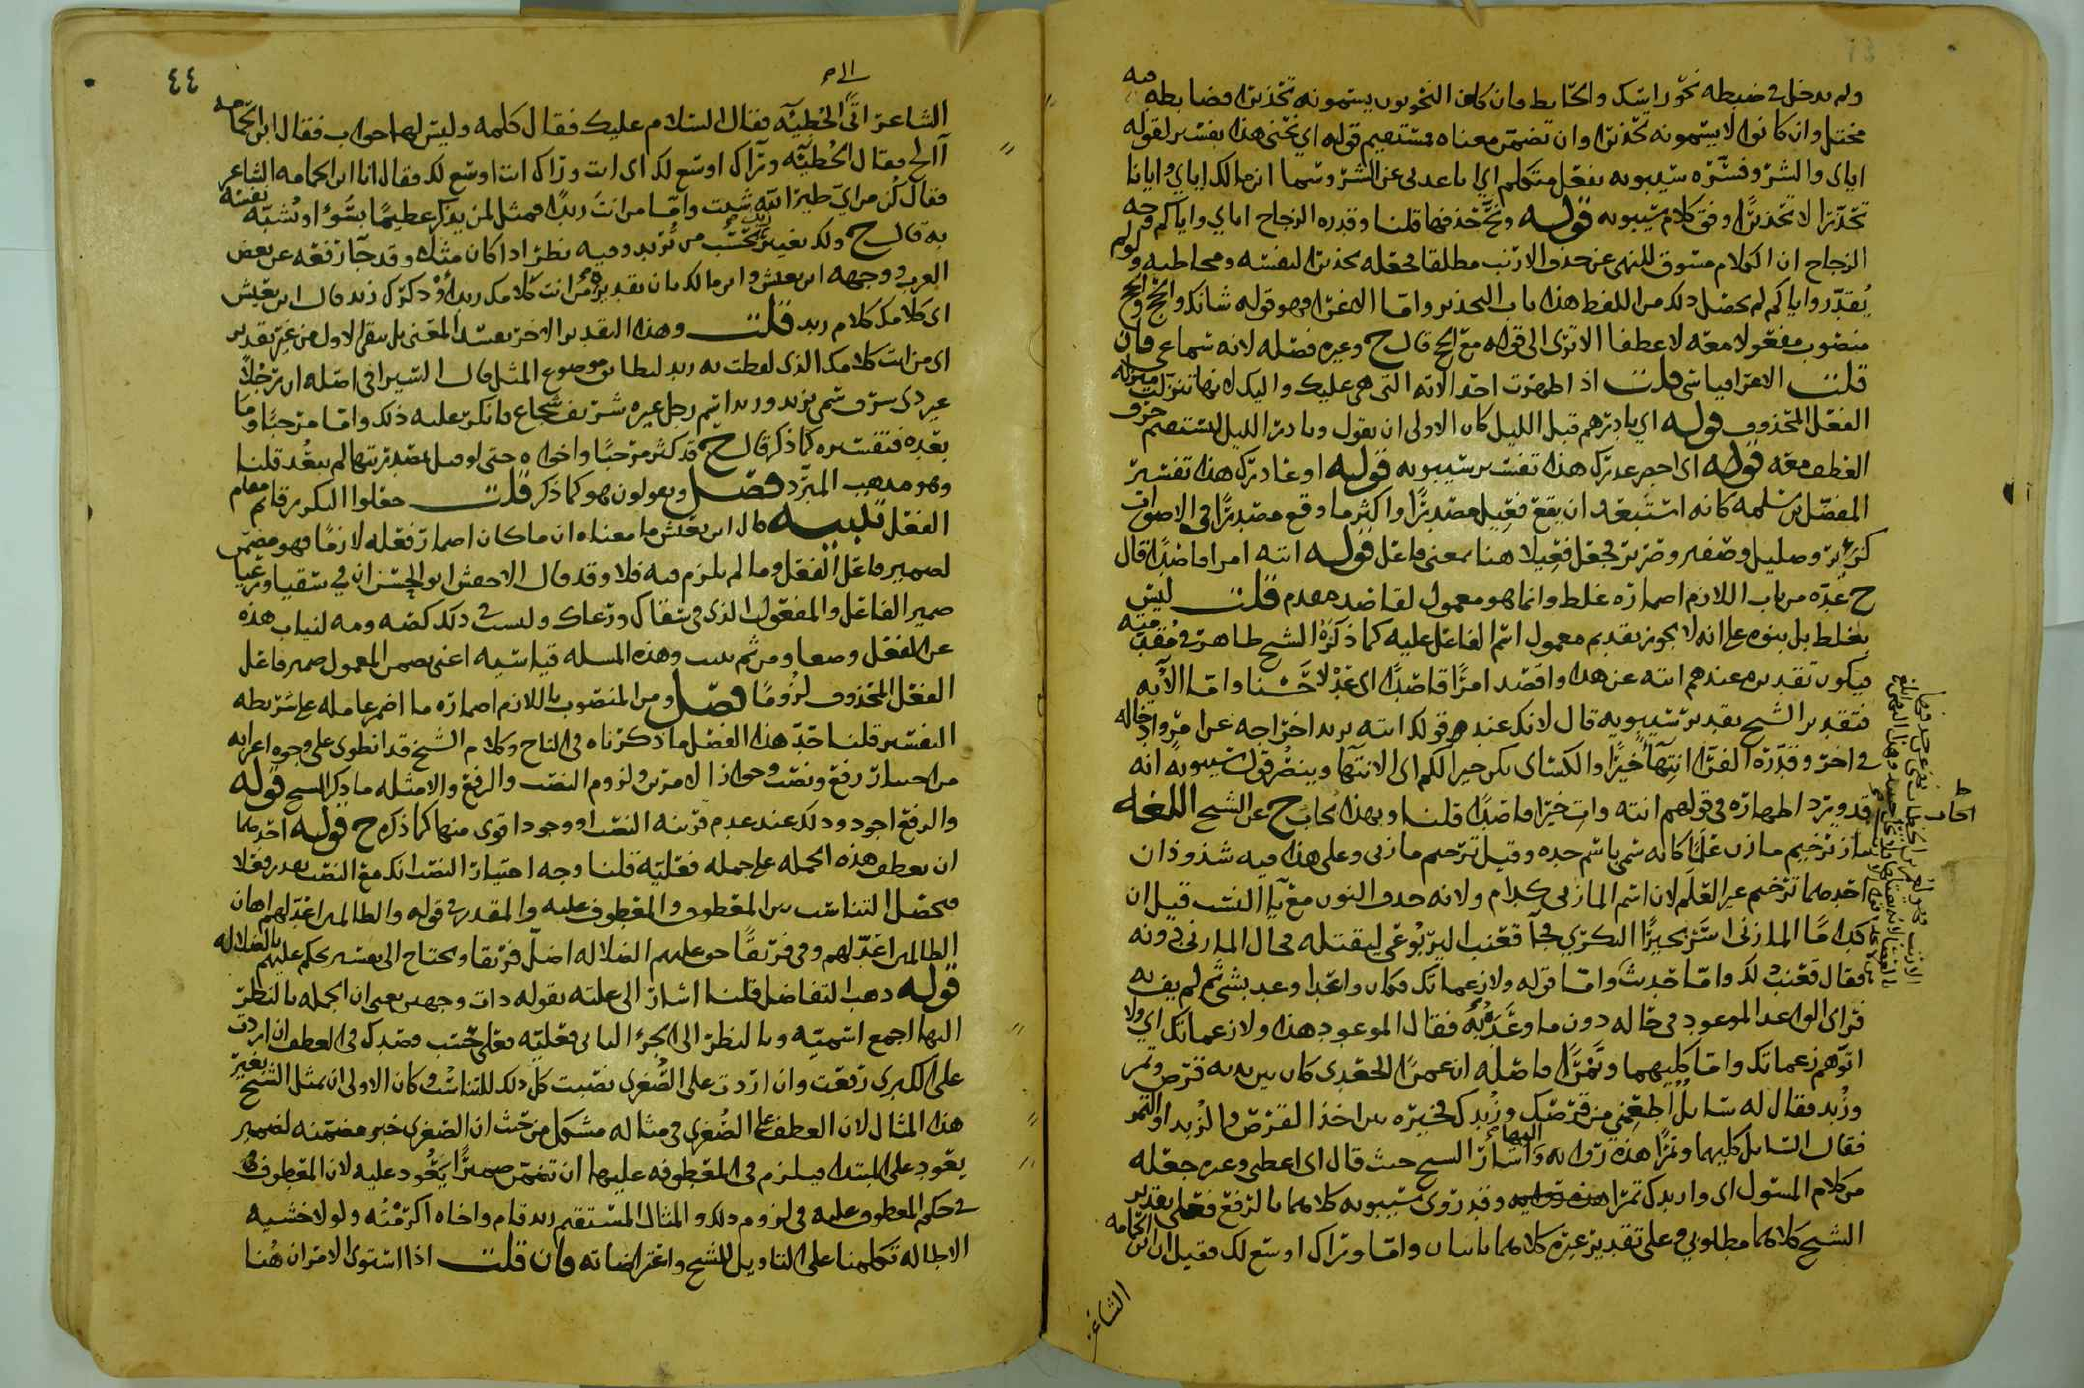 ولم يدخل في ضبطه نحو راسك والحايط فان كان النحويون يسمونه تحذيرا فضابطه فيه
مختل وان كانوا لا يسمونه تحذيرا وان تضمن معناه فمستقيم قوله اي نحني هذا تفسير لقوله
اياي والشر وفسره سيبويه بفعل متكلم اي باعدني عن الشر وشما ابن مالك اياي وايانا
تحذيرا لا تحذيرا وفق كلام سيبويه قوله فيما قلنا وقدره الزجاج اياي واياكم وجه
الزجاج ان الكلام مسوق للنهي عن حذف الارنب مطلقا فجعله تحذيرا لنفسه ومخاطبه ولو لم
يقدر واياكم لم يحصل ذلك من اللفظ هذا باب التحذير واما الاغرا فهو قوله شانك والحج والحج
منصوب مفعولا معه لا عطفا الا ترى الى قوله مع الحج قال ح وغيره فضله لانه سماعي فان
قلت الاغرا قياسي قلت اذا اظهرت احد الاته التي هي عليك واليك لانها تنزلت منزلة
الفعل المحذوف قوله اي بادرهم قبل الليل كان الاولى ان يقول وبادر الليل ليستقيم حرف
العطف معه قوله اي احضر عذرك هذا تفسير سيبويه قوله او عاذرك هذا تفسير
المفضل بن سلمه كانه استبعد ان يقع فعيل مصدرا واكثر ما وقع مصدرا في الاصوات
كزئير وصليل وصفير وضرير فجعل فعيلا هنا بمعنى فاعل قوله انته امرا قاصدا قال
ح عده من باب اللازم اضماره غلط وانما هو معمول لقاصد مقدم قلت ليس
بغلط بل بنوه على انه لا يجوز تقديم معمول اسم الفاعل عليه كما ذكره الشيخ طاهر في مقدمته
فيكون تقديره عندهم انته عن هذا واقصد امرا قاصدا اي عدلا حسنا واما الآيه
فتقدير الشيخ تقدير سيبويه قال لانك عند قولك انته تريد اخراجه عن امر وادخاله
في اخر وقدره الفرا انتهاءً خيرا والكساي يكن خيرا لكم اي الانتها وينصر قول سيبويه انه
قد ورد اظهاره في قولهم انته وات خيرا قاصدا قلنا وبهذا يجاب ح عن الشيخ اللغه
مازِ ترخيم مازن علما كانه سمي باسم جده وقيل ترخيم مازني وعلى هذا فيه شذوذان
احدهما ترخيم غير العلم لان اسم المازني كدام ولانه حذف النون مع يا النسب قيل ان
كداما المازني اسر بحيرا البكري فجا قعنب اليربوعي ليقتله فحال المازني دونه
فقال قعنب ذلك واما حديث واما قوله ولا زعماتك فكان واعدا وعد بشي ثم لم يف به
فراى الواعد الموعود في حاله دون ما وعده به فقال الموعود هذا ولا زعماتك اي ولا
اتوهم زعماتك واما كليهما وتمرا فاصله ان عمرا الجعدي كان بين يديه قرص وتمر
وزبد فقال له سايل اطعمني من قرصك وزبدك فخيره بين اخذ القرص والزبد او التمر
فقال السايل كليهما وتمرا هذه روايه واليها اشار الشيخ حيث قال اي اعطني وغيره جعله
من كلام المسئول اي واريدك تمرا وقد روى سيبويه كلاهما بالرفع فعلى تقدير
الشيخ كلاهما مطلوبي وعلى تقدير غيره كلاهما ثابتان واما وراك اوسع لك فقيل ان ابن الحمامه
الشاعر
٤٤
الشاعر اتى الحطيئه فقال السلام عليك فقال كلمه وليس لها جواب فقال ابن الحمامه
أالج فقال الحطيئه وراك اوسع لك اي ائت وراك ائت اوسع لك فقال انا ابن الحمامه الشاعر
فقال كن من اي طير الله شيت واما من انت زيدا فمثل لمن يذكر عظيما بسوء او يشبه نفسه
به قال ح ولك تغيير زيد بحسب من تريد وفيه نظر اذا كان مثلا وقد جا رفعه عن بعض
العرب ووجهه ابن يعيش وابن مالك بان تقديره من انت كلامك زيد او ذكرك زيد قال ابن يعيش
اي كلامك كلام زيد قلت وهذا التقدير الاخر يفسد المعنى بل يبقى الاول من غير تقدير
اي من انت كلامك الذي لفظت به زيد ليطابق موضوع المثل قال السيرافي اصله ان رجلا
غير ذي شرف سمي بزيد وزيد اسم رجل غيره شريف شجاع فانكر عليه ذلك واما مرحبا وما
بعده فتفسيره كما ذكر قال ح قد كثر مرحبا واخواه حتى لو قيل بمصدريتها لم يبعد قلنا
وهو مذهب المبرد فصل ويقولون هو كما ذكر قلت جعلوا التكرير قائم مقام
الفعل تنبيه قال ابن يعيش ما معناه ان ما كان اضمار فعله لازما فهو مضمن
لضمير فاعل الفعل وما لم يلزم فيه فلا وقد قال الاخفش ابو الحسن ان في سقيا ورعيا
ضمير الفاعل والمفعول الذي في سقاك ورعاك وليست في ذلك كصه ومه لنياب هذه
عن الفعل وضعا ومن ثم بنيت وهذه المسله قياسيه اعني تضمن المعمول ضمير فاعل
الفعل المحذوف لزوما فصل ومن المنصوب باللازم اضماره ما اضمر عامله على شريطه
التفسير قلنا حد هذا الفصل ما ذكرناه في التاج وكلام الشيخ قد انطوى على وجوه اعرابه
من اختيار رفع ونصب وجواز الامرين ولزوم النصب والرفع والامثله ما ذكر الشيخ قوله
والرفع اجود وذلك عند عدم قرينه النصب او وجود اقوى منها كما ذكره ح قوله احدهما
ان يعطف هذه الجمله على جمله فعليه قلنا وجه اختيار النصب انك مع النصب تقدر فعلا
فيحصل التناسب بين المعطوف والمعطوف عليه والمقدر في قوله والظالمين اعد لهم اهان
الظالمين اعد لهم وفي فريقا حق عليهم الضلاله اضل فريقا ويحتاج الى تفسير بحكم عليهم بالضلاله
قوله ذهب التفاضل قلنا اشار الى علته بقوله ذات وجهين يعني ان الجمله بالنظر
اليها اجمع اسميه وبالنظر الى الجزء الثاني فعليه فعلى حسب قصدك في العطف ان اردت
على الكبرى رفعت وان اردت على الصغرى نصبت كل ذلك للتناسب وكان الاولى ان يمثل الشيخ بغير
هذا المثال لان العطف على الصغرى في مثاله مشكل من حيث ان الصغرى خبر مضمنه لضمير
يعود على المبتدا فيلزم في المعطوفه عليها ان تضمن ضميرا يعود عليه لان المعطوف
في حكم المعطوف عليه في لزوم ذلك والمثال المستقيم زيد قام واخاه اكرمته ولولا خشيه
الاطاله تكلمنا على التاويل للشيخ واعتراضاته فان قلت اذا استوى الامران هنا